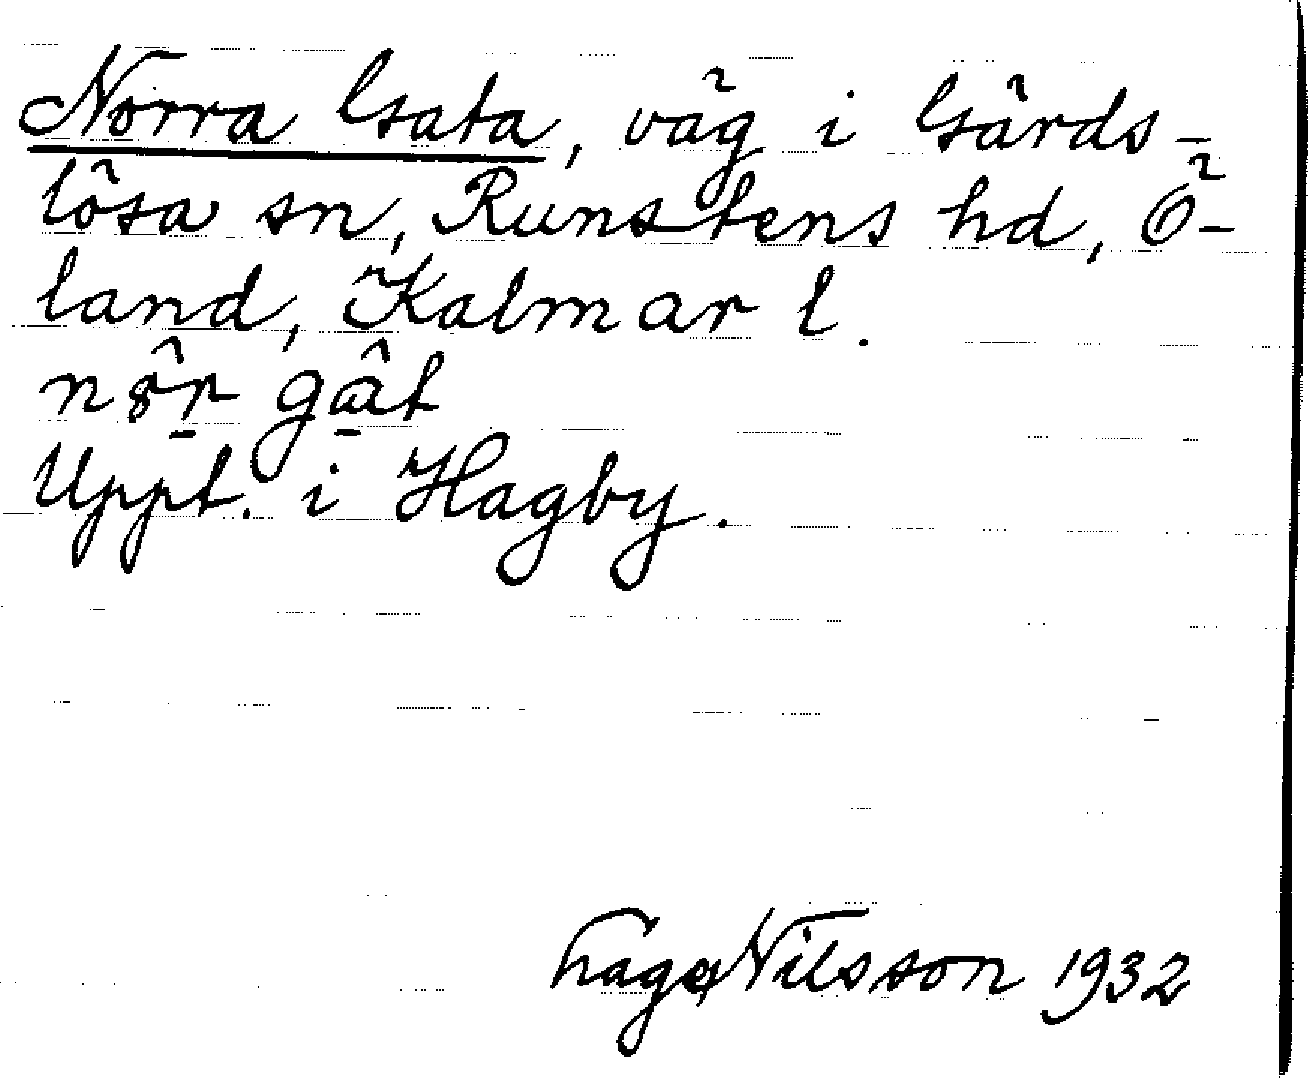 Norra Gata, väg i Gärds-
lösa sn, Runstens hd, Ö-
land, Kalmar l.
Uppt. i Hagby.
Nilsson 1932